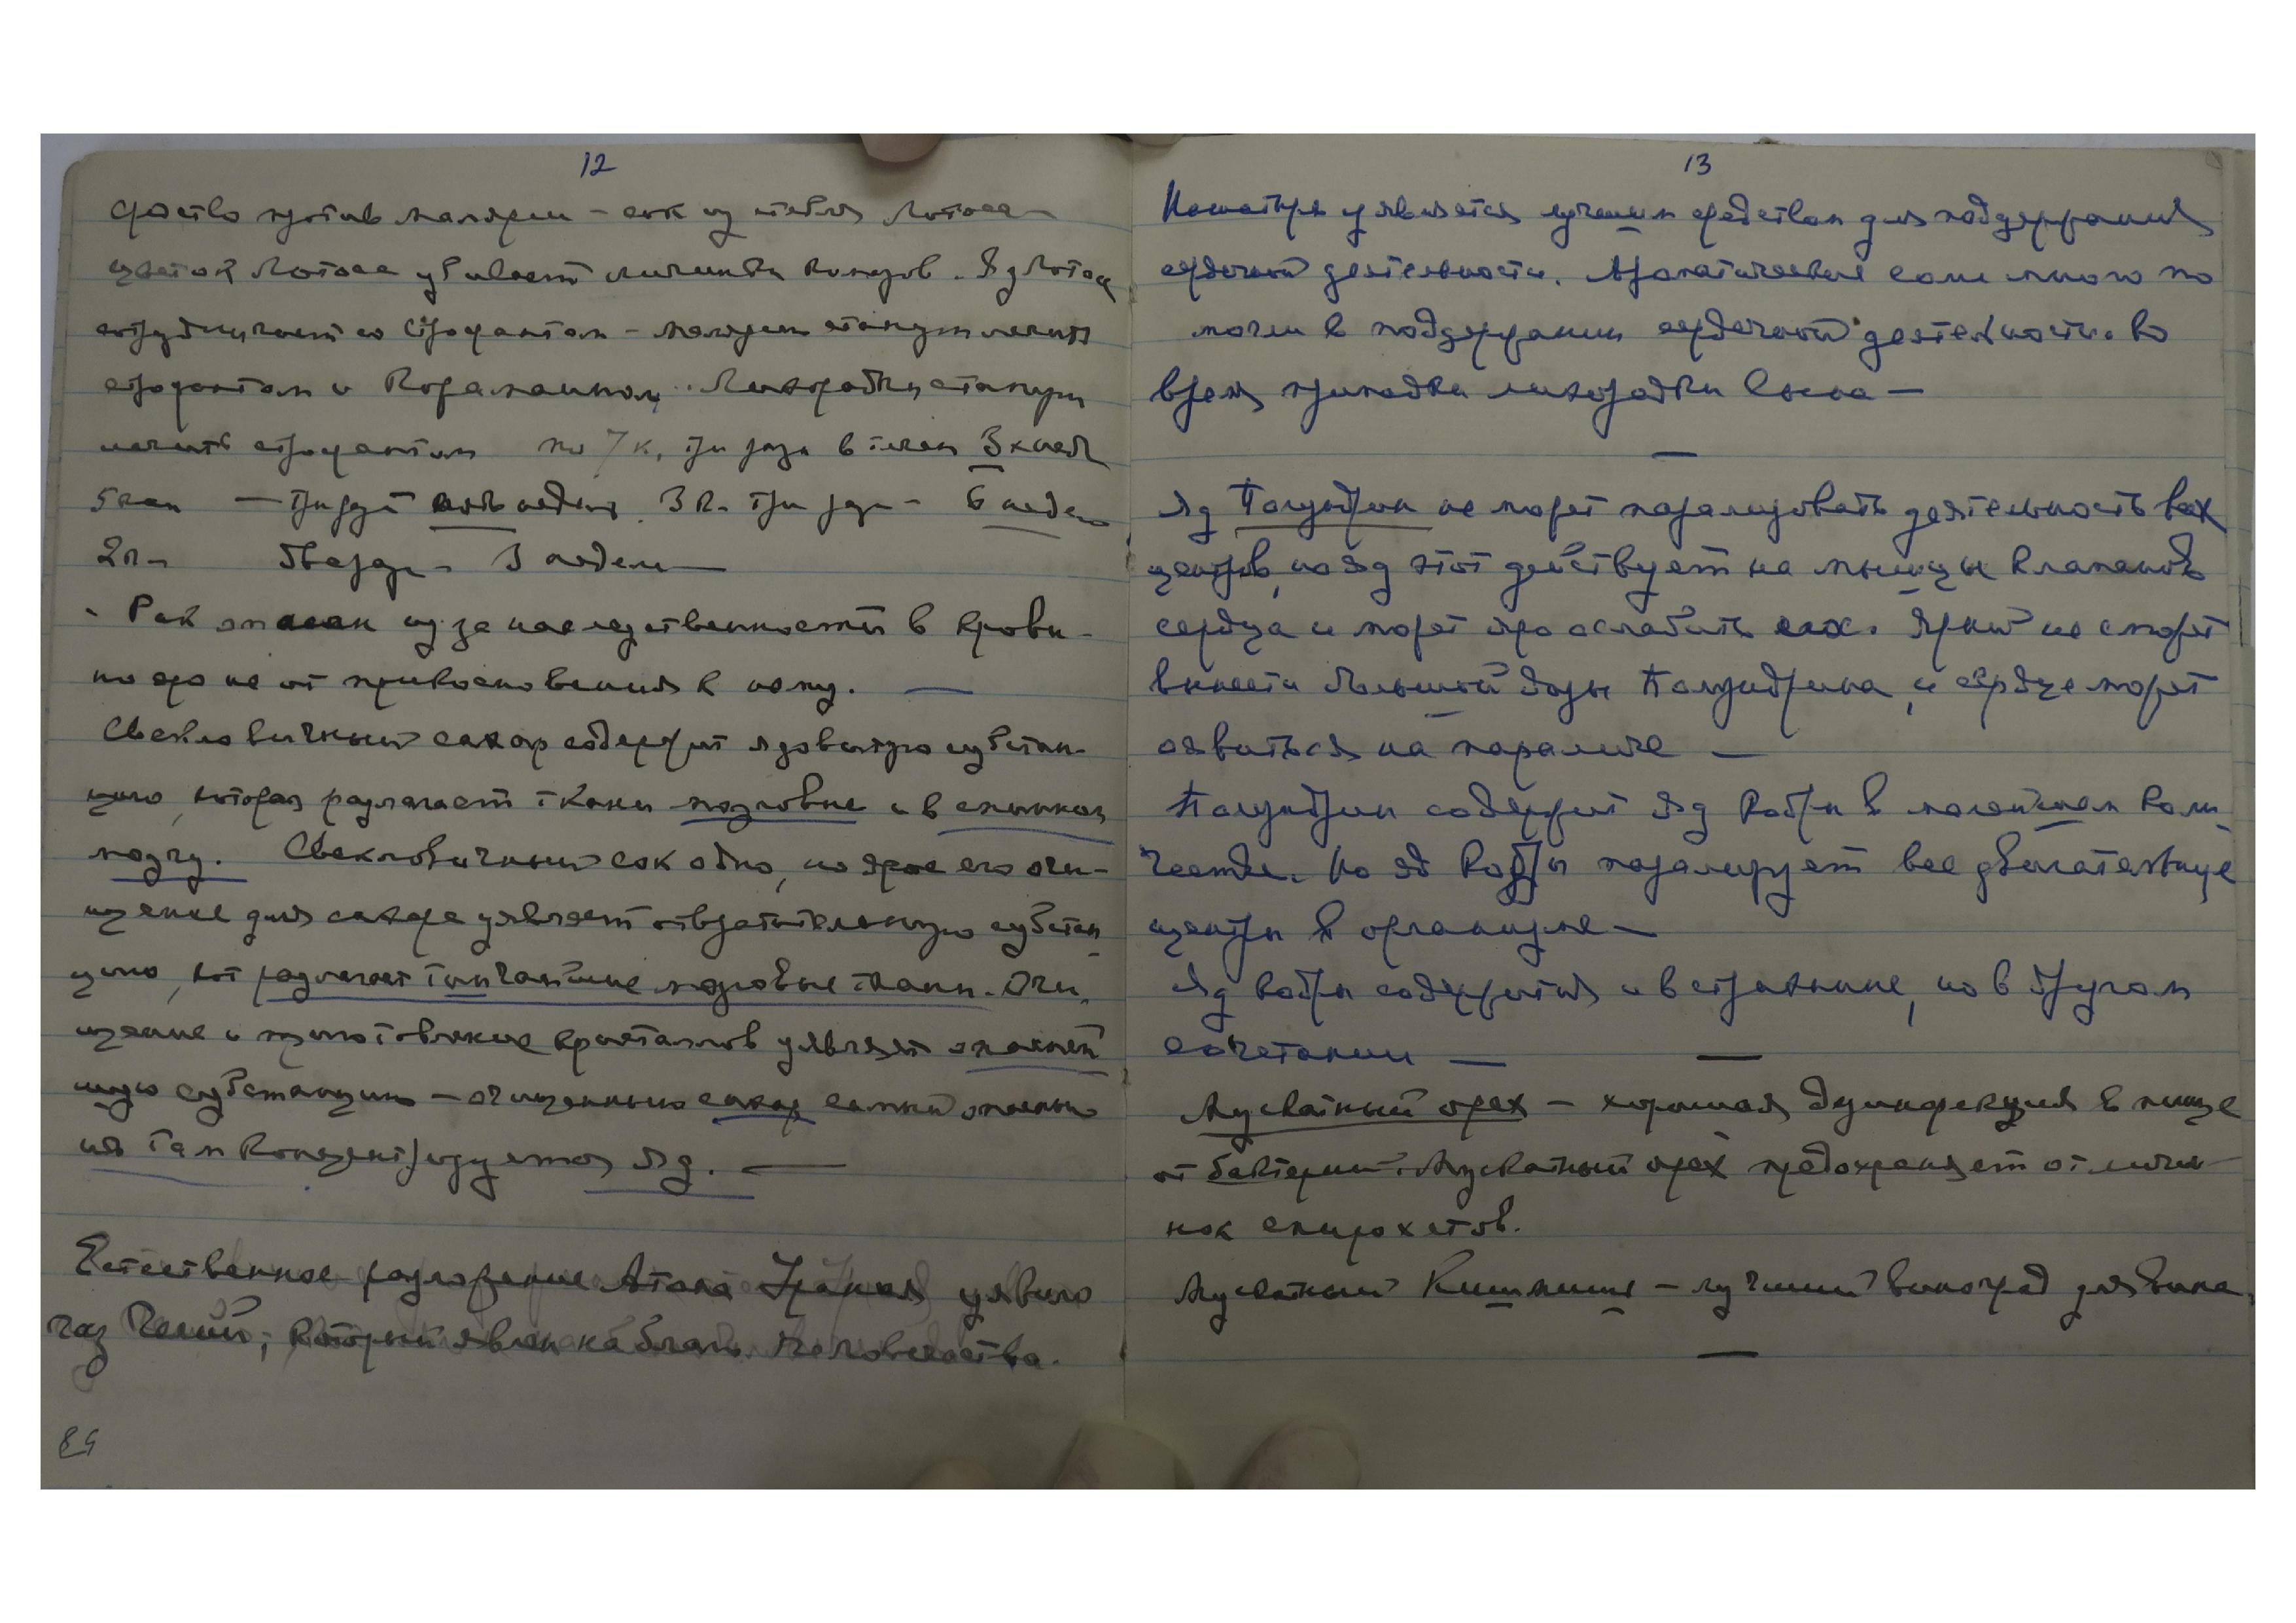 12
средство против малярии – сок из стебля Лотоса –
цветок Лотоса убивает личинки комаров. Яд Лотоса
сотрудничает со Строфантом – малярию станут лечить
строфантом и Корамином. Лихорадки станут
лечить строфантом по 7 к. три раза в течен 3х нед
5 кап — три раз недели. 3 к. три раза – 6 недель
2 к – два раза – 3 недели —
Рак опасен из за наследственности в крови –
но яро не от прикосновения к нему. —
Свекловичный сахар содержит ядовитую субстан-
цию, которая разлагает ткани мозговые и в спинном
мозгу. Свекловичный сок одно, но ярое его очи-
щение для сахара уявляет отвратительную субстан
цию, кот разлагает тончайшие мозговые ткани. Очи-
щение и приготовление кристаллов уявляет опасней
шую субстанцию – очищенный сахар самый опасный
ибо там концентрируется яд. —
Естественное разложение Атома Урания уявило
газ Гелий, который явлен на благо человечества.
89
13
Нашатырь уявляется лучшим средством для поддержания
сердечной деятельности. Ароматические соли много по
могли в поддержании сердечной деятельности. во
время припадка лихорадки была –
Яд Палудрин не может парализовать деятельность всех
центров, но яд этот действует на мышцы клапанов
сердца и может яро ослабить их. Ярый не сможет
вынести большой дозы Палудрина, и сердце может
оявиться на параличе –
Палудрин содержит яд кобры в малейшем коли
честве. Но яд кобры парализует все двигательные
центры в организме –
Яд кобры содержится и в стрихнине, но в другом
сочетании —
Мускатный орех – хорошая дезинфекция в пище
от бактерий. Мускатный орех предохраняет от личи-
нок спирохетов.
Мускатный Кишмиш – лучший виноград для вина.